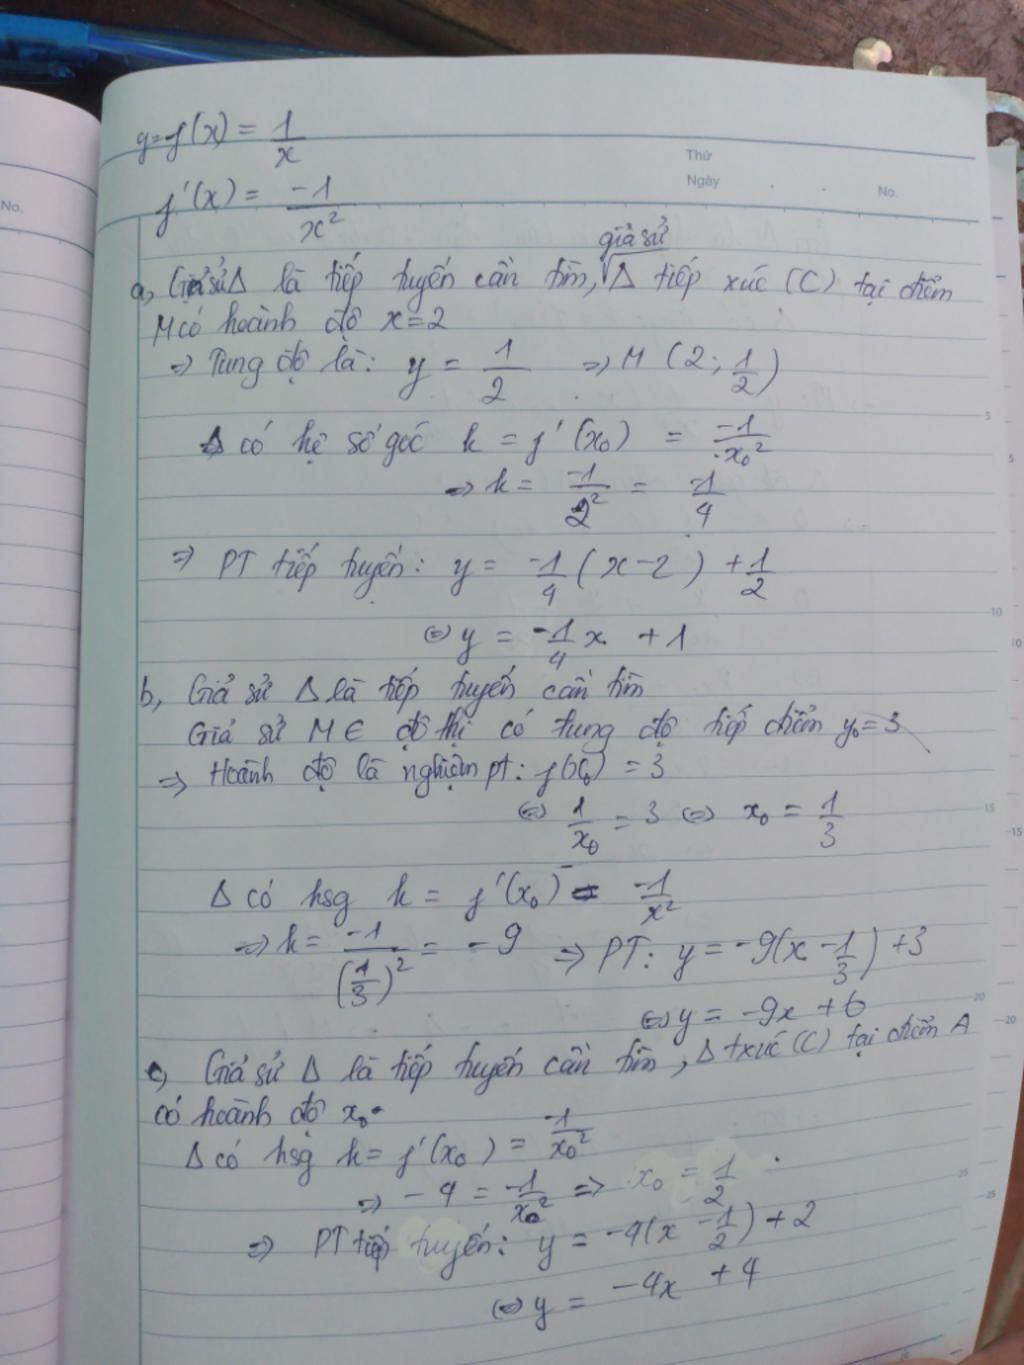 y=f(x) = 1/x
Thứ
Ngày . . No.
No.
f'(x) = -1/x²
giả sử
a, Giả sử Δ là tiếp tuyến cần tìm, Δ tiếp xúc (C) tại điểm
M có hoành độ x=2
=> Tung độ là: y = 1/2 => M (2; 1/2)
Δ có hệ số góc k = f'(x₀) = -1/x₀²
=> k = -1/2² = -1/4
=> PT tiếp tuyến: y = -1/4 (x-2) + 1/2
<=> y = -1/4 x + 1
b, Giả sử Δ là tiếp tuyến cần tìm
Giả sử M ∈ đồ thị có tung độ tiếp điểm y₀=3
=> Hoành độ là nghiệm pt: f(x₀) = 3
<=> 1/x₀ = 3 <=> x₀ = 1/3
Δ có hsg k = f'(x₀) = -1/x²
=> k = -1/(1/3)² = -9 => PT: y = -9(x - 1/3) + 3
<=> y = -9x + 6
c, Giả sử Δ là tiếp tuyến cần tìm, Δ txúc (C) tại điểm A
có hoành độ x₀.
Δ có hsg k = f'(x₀) = -1/x₀²
=> -4 = -1/x₀² => x₀ = 1/2
=> PT tiếp tuyến: y = -4(x - 1/2) + 2
<=> y = -4x + 4